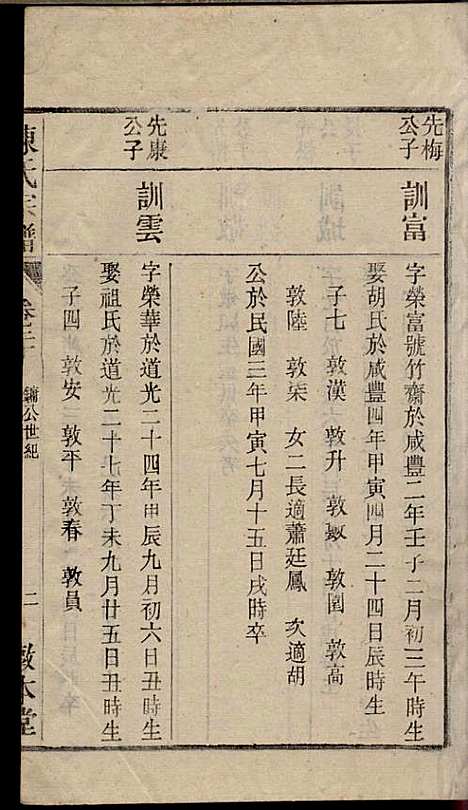 先梅
公子
訓富
字榮富號竹齋於咸豐二年壬子二月初三午時生
娶胡氏於咸豐四年甲寅四月二十四日辰時生
子七 敦漢 敦升 敦 敦 敦高
敦陸 敦榮 女二長適蕭廷鳳 次適胡
公於民國三年甲寅七月十五日戌時卒
先康
公子
訓雲
字榮華於道光二十四年甲辰九月初六日丑時生
娶祖氏於道光二十七年丁未九月廿五日丑時生
子四 敦安 敦平 敦春 敦員
陳氏宗譜
卷之
鏞公世紀
二
敦本堂